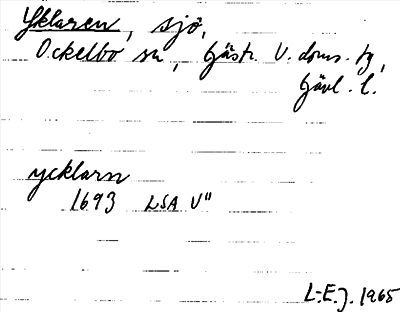 Yklaren, sjö,
Ockelbo sn, Gästr. V. doms. tg,
Gävl. l.
ycklarn
1693 LSA V¹¹
L-E.J. 1965